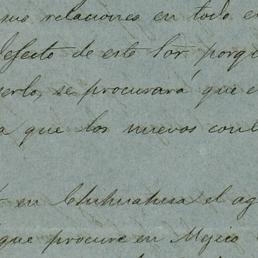 sus relaciones en todo e
efecto de este Sor. porqu
erlo, se procurará que e
a que los nuevos con
en Chihuahua el ag
que procure en Mejico